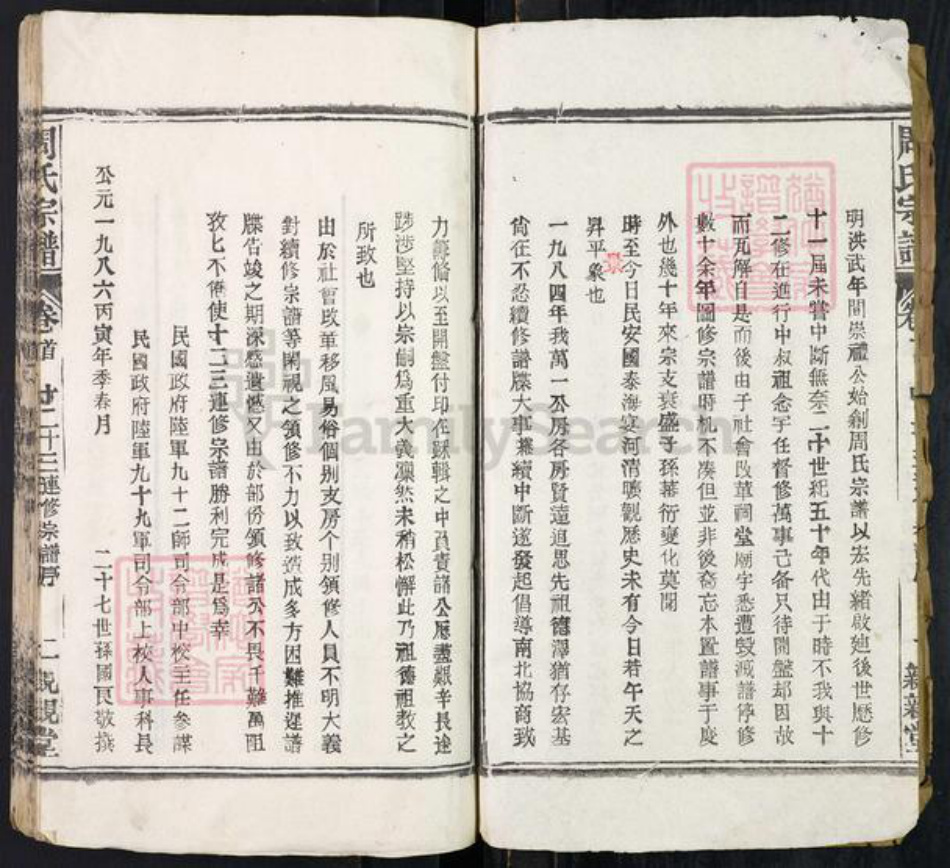 周氏宗譜
明洪武年間崇禮公始創周氏宗譜以宏先緒啟廸後世歷修
十一屆未嘗中斷無奈二十世紀五十年代由于時不我與十
二修在進行中叔祖念宇任督修萬事己备只待開盤却因故
而瓦解自是而後由于社會改革祠堂廟宇悉遭毀滅譜停修
數十余年圖修宗譜時机不凑但並非後裔忘本置譜事于度
外也幾十年來宗支衰盛子孫蕃衍變化莫聞
時至今日民安國泰海宴河清曠觀歷史未有今日若午天之
昇平象也
一九八四年我萬一公房各房賢達追思先祖德澤猶存宏基
尚在不忍續修譜牒大事業續中斷遂發起倡導南北協商致
力籌備以至開盤付印在踩輯之中負責諸公歷盡艱辛長途
跋涉堅持以宗嗣爲重大義凜然未稍松懈此乃祖德祖教之
所致也
由於社會改革移風易俗個别支房个别領修人員不明大義
對續修宗譜等閑視之領修不力以致造成多方困難推遲譜
牒告竣之期深感遺憾又由於部份領修諸公不畏千難萬阻
孜匕不倦使十二三連修宗譜勝利完成是爲幸
民國政府陸軍九十二師司令部中校主任參謀
民國政府陸軍九十九軍司令部上校人事科長
公元一九八六丙寅年季春月 二十七世孫國民敬撰
周氏宗譜 卷首 十二十三連修宗譜序 二 覲堂
FamilySearch